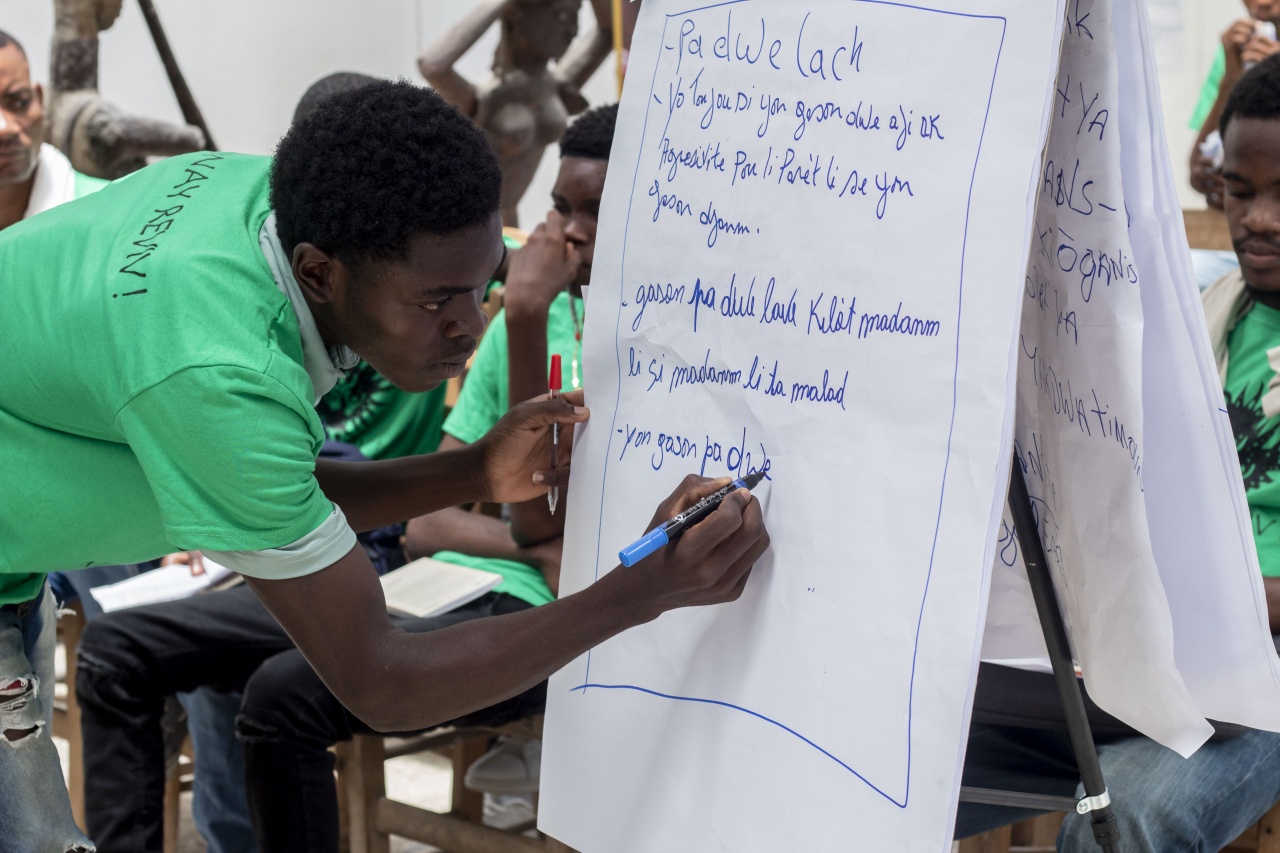 NAY REVIV !
-Pa dwe lach
- Yo toujou di yon gason dwe aji ak
Agresivite Pou li Parèt li se yon
gason djanm.
- gason pa dwe lave Kilòt madanm
li si madanm li ta malad
-yon gason pa dwe
K
YA
ANS-
ÒGANIS